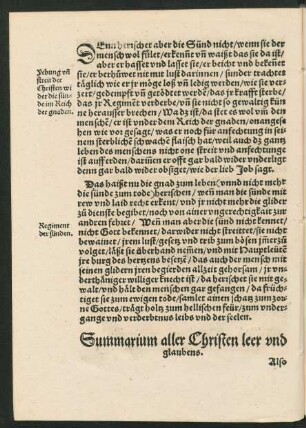 Denn herrschet aber die Sünd nicht/ wenn sie der
mensch wol fület/ erkennt vñ waißt das sie da ist/
aber er hasset vnd lasset sie/ er beicht vnd bekenet
sie/ er berhüwet nit mit lust darinnen/ sunder trachtet
täglich wie er jr möge loß vñ ledig werden/ wie sie verz
zert/ gedempft vñ getödtet werde/ das jr krafft sterbe/
das jr Regimēt verderbe/ vñ sie nicht so gewaltig küne
herausser brechen/
Yebung vñ
streit der
Christen wi
der die sün-
de im Reich
der gnaden.
mensche/ er ist vnder dem Reich der gnaden/
wie vor gesagt/ was er noch für anfechtung in sei
nem sterblichē schwachē flaisch hat/ weil auch dz gantz
leben des menschens nicht one streit vnd anfechtunge
ist auff erden/ darüm er offt gar bald wider vnderligt
denn gar bald wider obsiget/ wie der lieb Job sagt.
Das haißt nu die gnad zum leben/ vnnd nicht mehr
die sünde zum tode herschen/ weñ man die sünde mit
rew vnd laid recht erkent/ vnd jr nicht mehr die glider
zů dienste begibet/ noch von ainer vngerechtigkait zur
andren fehret/ Weñ man aber die sünd nicht kennet/
Regiment
der sünden.
nicht Gott bekennet/ darwider nicht streittet/ sie nicht
bewainet/ jrem lust/ gesetz vnd trib zum bösen
volget/ läßt sie überhand nemen/ vnd mit
der burg des hertzens besetze/ das auch der mensch mit
seinen glidern jren begierden allzeit gehorsam/ jr vn-
derthäniger williger knecht ist/ da herschet sie mit ge-
walt/ vnd hält den menschen gar gefangen/ da früch-
tiget sie zum ewigen tode/ samlet ainen schatz zum zor-
ne Gottes/ trägt holtz zum hellischen feür/ zum vnder-
gange vnd verderbtnus leibs vnd der seelen.
Summarium aller Christen leer vnd
glaubens.
Also